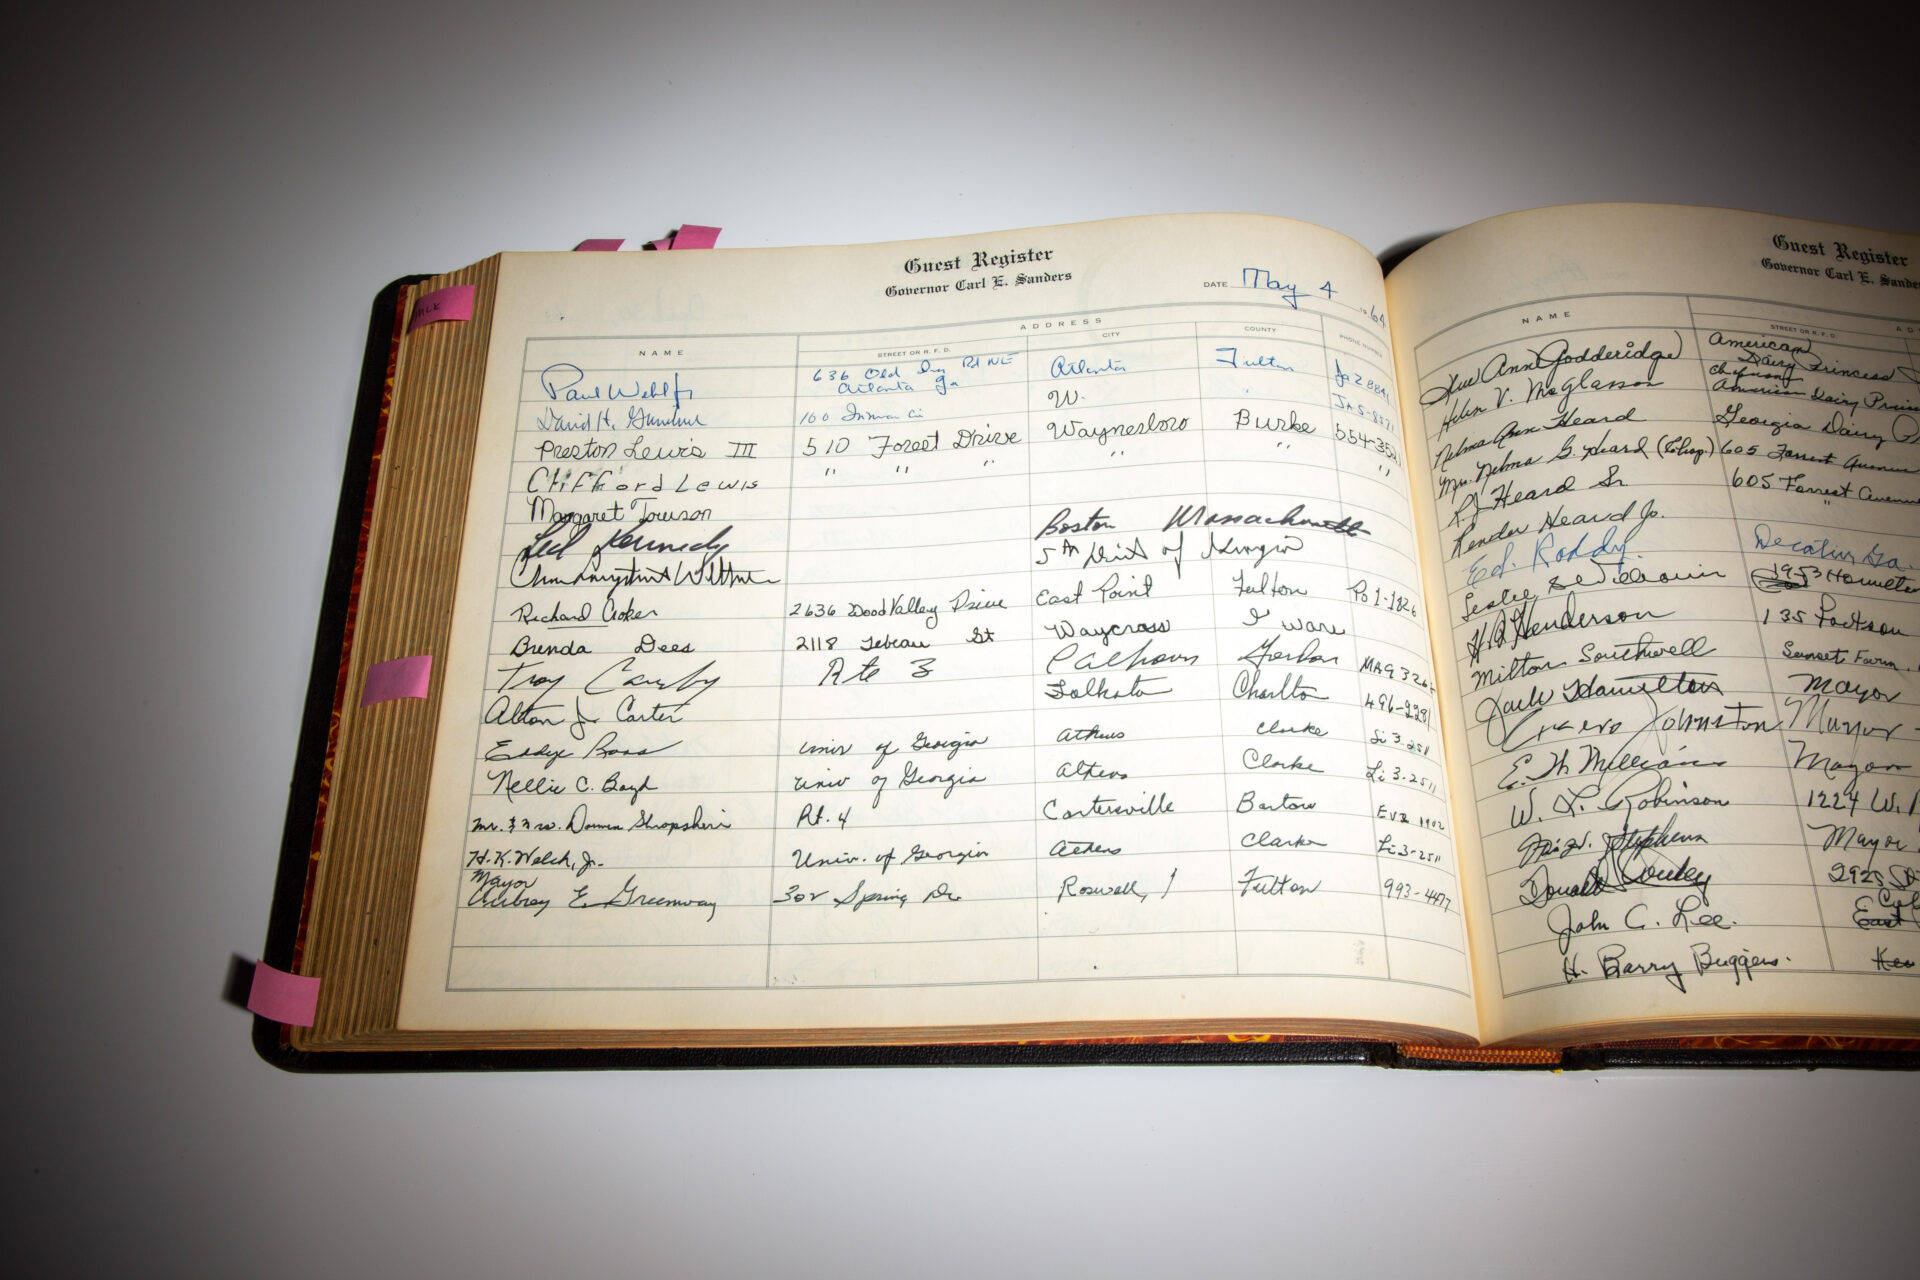 Guest Register
Governor Carl E. Sanders
DATE May 4 1964
ADDRESS
NAME STREET OR R.F.D. CITY COUNTY PHONE NUMBER
Paul Webb Jr 636 Old Ivy Rd NE Atlanta Ga Atlanta Fulton
David H. 100 Inman Cir " Ja 5-8371
Preston Lewis III 510 Forest Drive Waynesboro Burke 554-352
Clifford Lewis " " " " " "
Margaret Towson
Ted Kennedy Boston Massachusetts
5th Dist of Georgia
Richard Coker 2636 Wood Valley Drive East Point Fulton Po 1-1826
Brenda Dees 2118 Tebeau St Waycross Ware
Troy Rte 3 Calhoun Gordon MA9 326
Alton J. Carter Folkston Charlton 496-2281
Eddye Ross Univ of Georgia Athens Clarke Li 3-2511
Nellie C. Boyd Univ of Georgia Athens Clarke Li 3-2511
Mr. & Mrs. Shropshire Rt. 4 Cartersville Bartow EV2 1902
H.K. Welch, Jr. Univ. of Georgia Athens Clarke Li 3-2511
Mayor
Aubrey E. Greenway 302 Spring Dr. Roswell, Fulton 993-4477
Guest Register
Governor Carl E. Sande
NAME STREET OR R.F.D. AD
Sue Ann Godderidge American Dairy Princess
Helen V. McGlasson Chaperone American Dairy Princ
Nelma Ann Heard Georgia Dairy P
Mrs. Nelma G. Heard (Chap.) 605 Forrest Avenue
R J Heard Sr. 605 Forrest Avenue
Render Heard Jr. "
Ed. Roddy. Decatur Ga.
Leslie 1953
Henderson 135
Milton Southwell Sunset Farm.
Jack Hamilton Mayor
Johnston Mayor
E. Th Mayor
W. L. Robinson 1224 W.
Stephens Mayor
Donald 2925
John C. Lee. East
H. Barry Buggess.